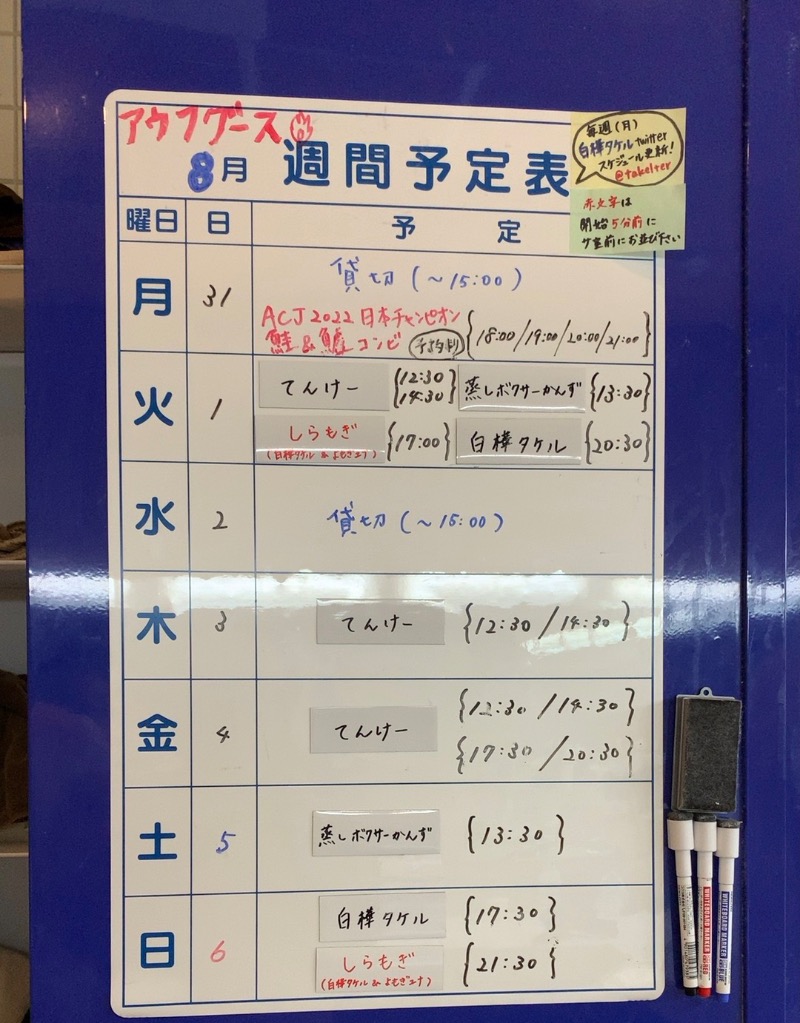 アウフグース
8月 週間予定表
毎週(月)
白樺タケルtwitter
スケジュール更新!
@takelter
赤文字は
開始5分前に
サ室前にお並び下さい
曜日 日 予定
月 31 貸切(~15:00)
ACJ2022日本チャンピオン
鮭&鱸コンビ 予約制 {18:00/19:00/20:00/21:00}
火 1 てんけー {12:30 14:30} 蒸しボクサーかんず {13:30}
しらもぎ {17:00} 白樺タケル {20:30}
(白樺タケル&よもぎユナ)
水 2 貸切(~15:00)
木 3 てんけー {12:30/14:30}
金 4 てんけー {12:30/14:30}
{17:30/20:30}
土 5 蒸しボクサーかんず {13:30}
日 6 白樺タケル {17:30}
しらもぎ {21:30}
(白樺タケル&よもぎユナ)
WHITEBOARD MARKER
WHITEBOARD MARKER